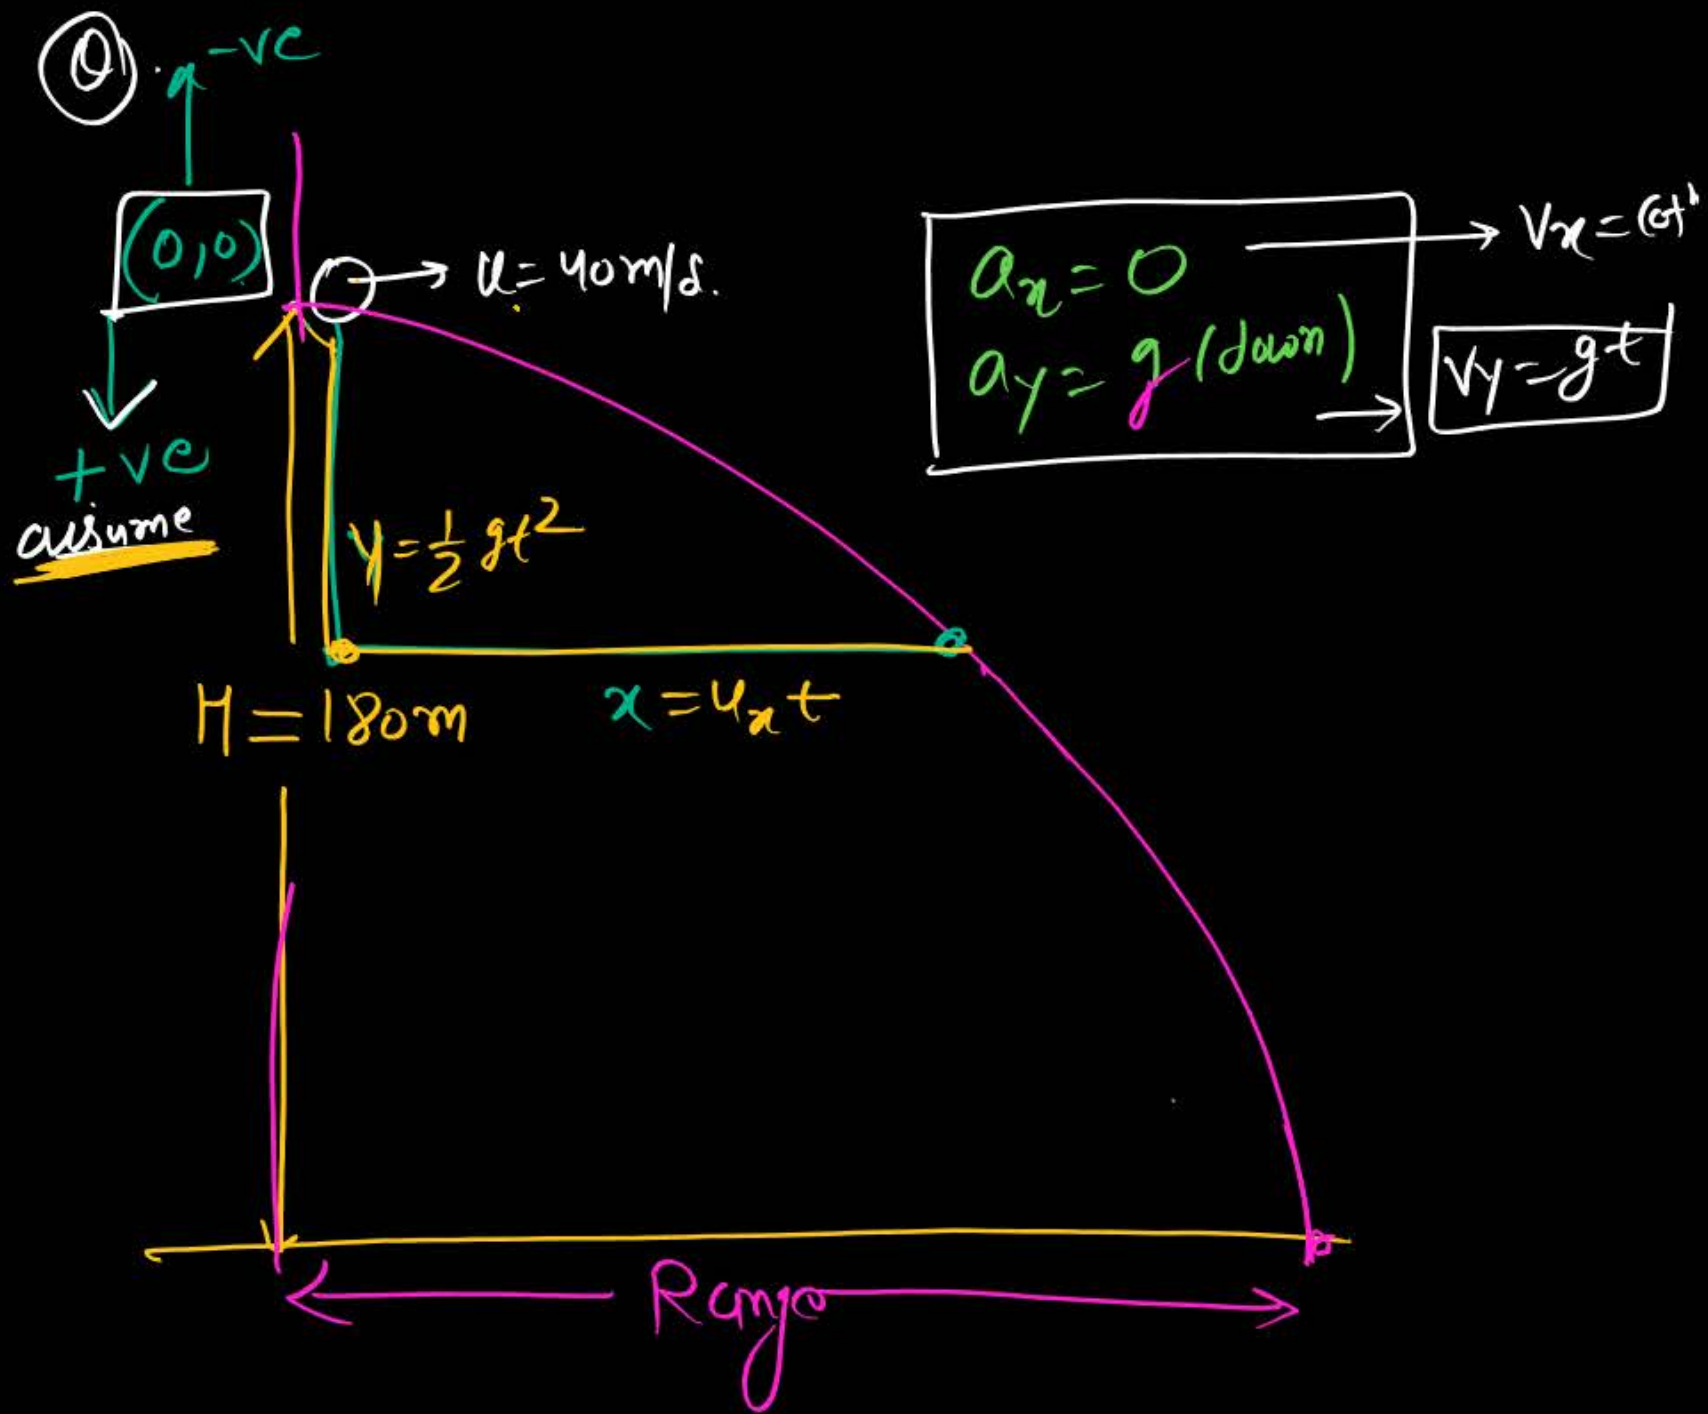 Q.
-ve
(0,0)
u = 40m/s.
+ve
assume
ax = 0
ay = g (down)
Vx =
Vy = gt
y = 1/2 gt²
H = 180m
x = ux t
Range